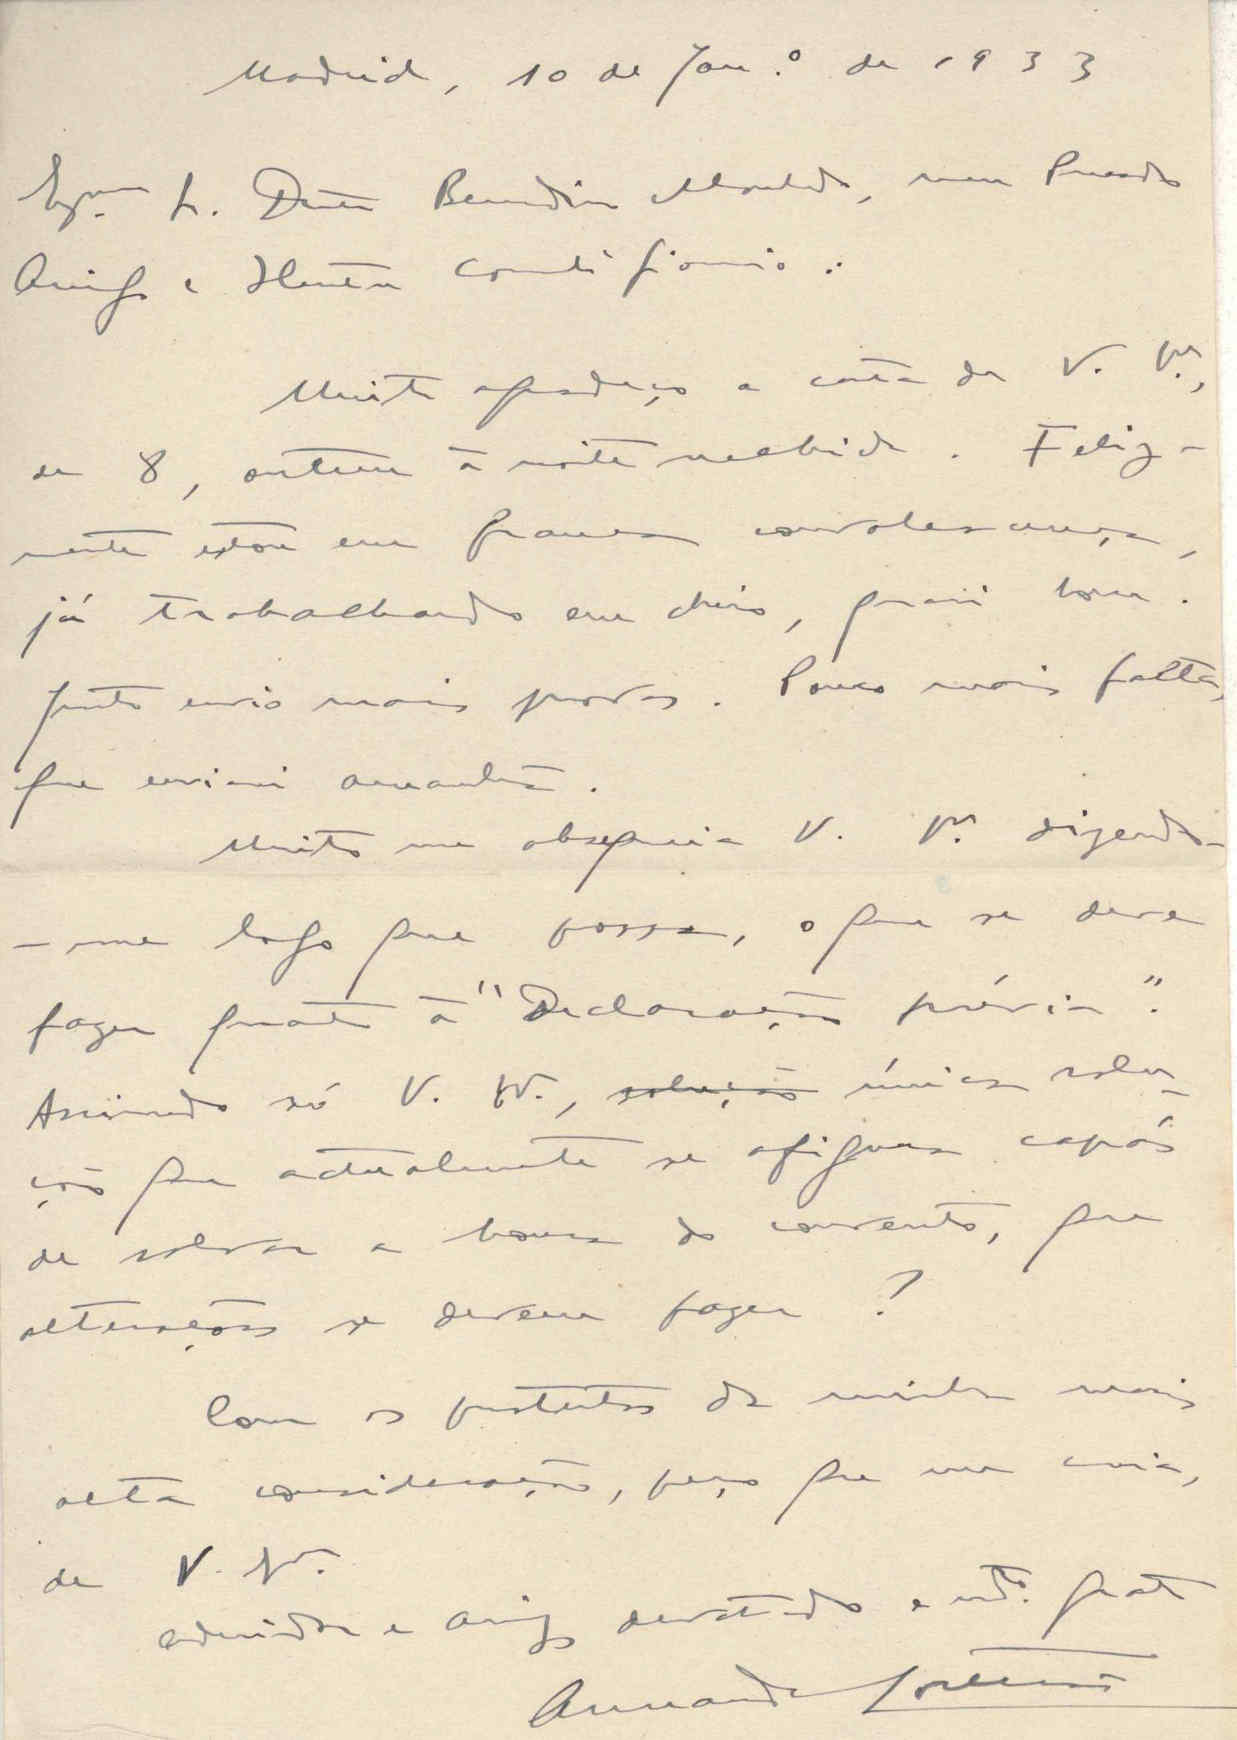 Madrid, 10 de Jan.º de 1933
Exmo Sr. Doutor Bernardino Machado, meu Prezado
Amigo e Ilustre Correligionário:
Muito agradeço a carta de V. Exª,
de 8, ontem à noite recebida. Feliz-
mente estou em franca convalescença,
já trabalhando em cheio, quási bom.
Junto envio mais provas. Pouco mais falta,
que enviarei amanhã.
Muito me obsequeia V. Exª dizendo-
-me logo que possa, o que se deve
fazer quanto à "Declaração prévia".
Assinando só V. Exª, solução única solu-
ção que actualmente se afigura capás
de salvar a honra do convento, que
alterações se devem fazer?
Com os protestos da minha mais
alta consideração, peço que me creia,
de V. Exª
admirador e amigo devotado e mtº grato
Armando Cortesão